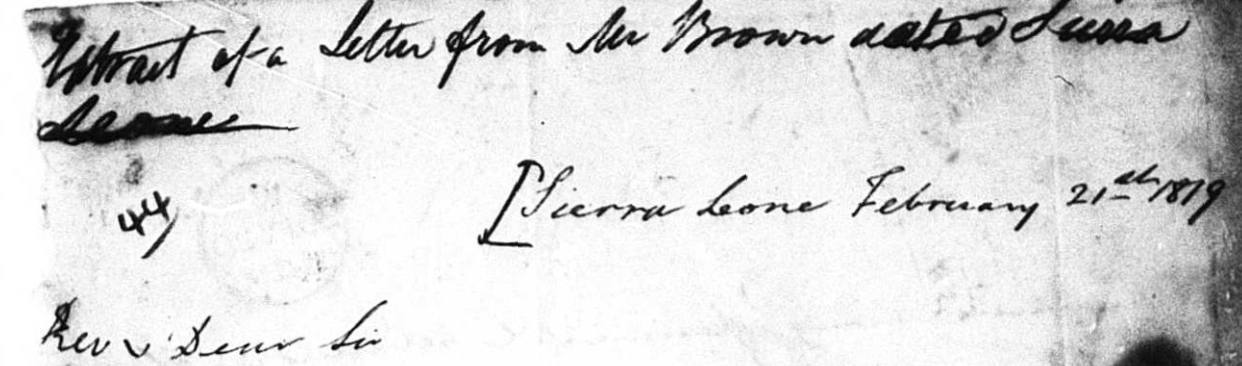 Extract of a Letter from Mr Brown dated Sierra
Leone
44
[Sierra Leone February 21st 1819
Rev Dear Sir